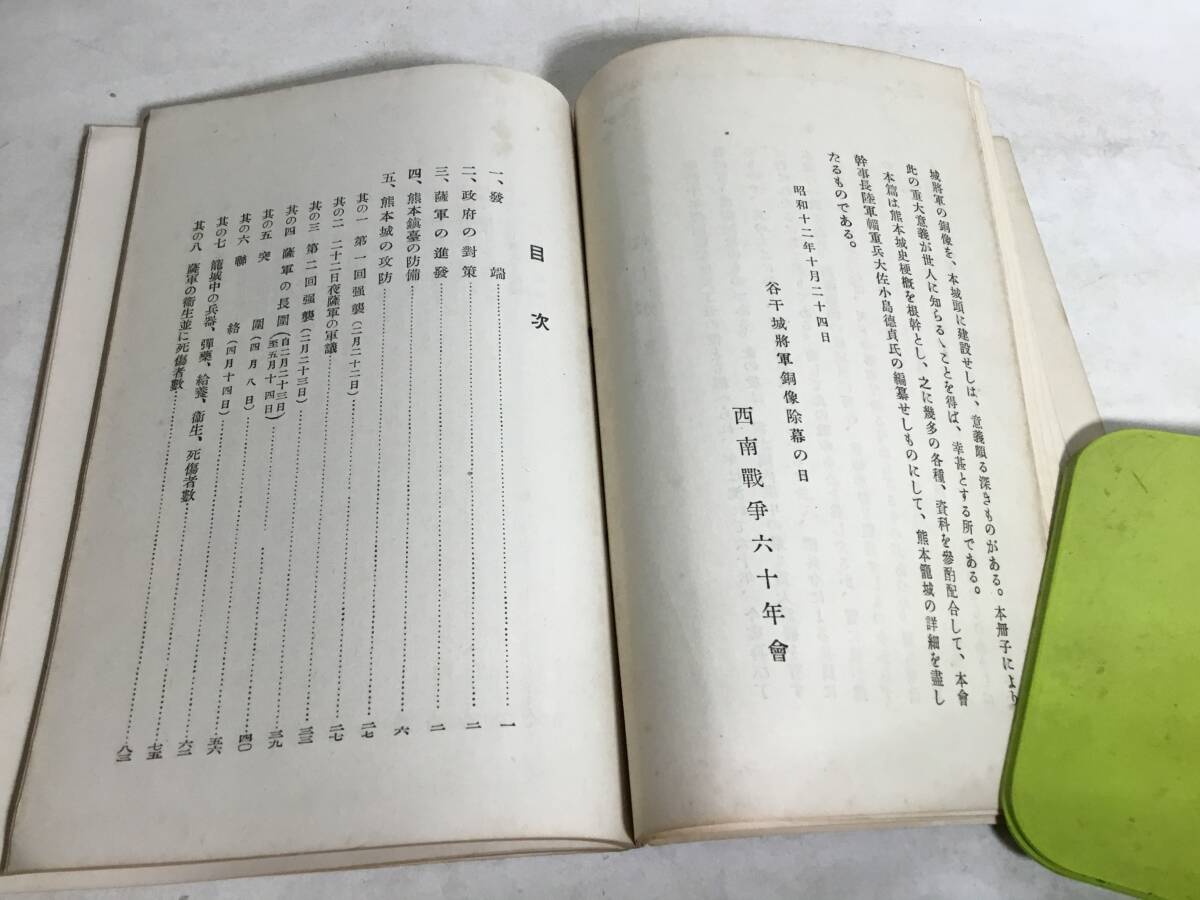 城將軍の銅像を、本城頭に建設せしは、意義頗る深きものがある。本冊子により
此の重大意義が世人に知らるゝことを得ば、幸甚とする所である。
本篇は熊本城史梗概を根幹とし、之に幾多の各種、資料を參酌配合して、本會
幹事長陸軍輜重兵大佐小島德貞氏の編纂せしものにして、熊本籠城の詳細を盡し
たるものである。
昭和十二年十月二十四日
谷干城將軍銅像除幕の日
西南戰爭六十年會
目次
一、發端…………一
二、政府の對策…………二
三、薩軍の進發…………二
四、熊本鎭臺の防備…………六
五、熊本城の攻防…………二七
其の一 第一回强襲(二月二十二日)…………二七
其の二 二十二日夜薩軍の軍議…………三三
其の三 第二回强襲(二月二十三日)…………三九
其の四 薩軍の長圍(自二月二十三日至五月十四日)…………四〇
其の五 突圍(四月八日)…………五六
其の六 聯絡(四月十四日)…………六二
其の七 籠城中の兵器、彈藥、給養、衞生、死傷者數…………七五
其の八 薩軍の衞生並に死傷者數…………八三